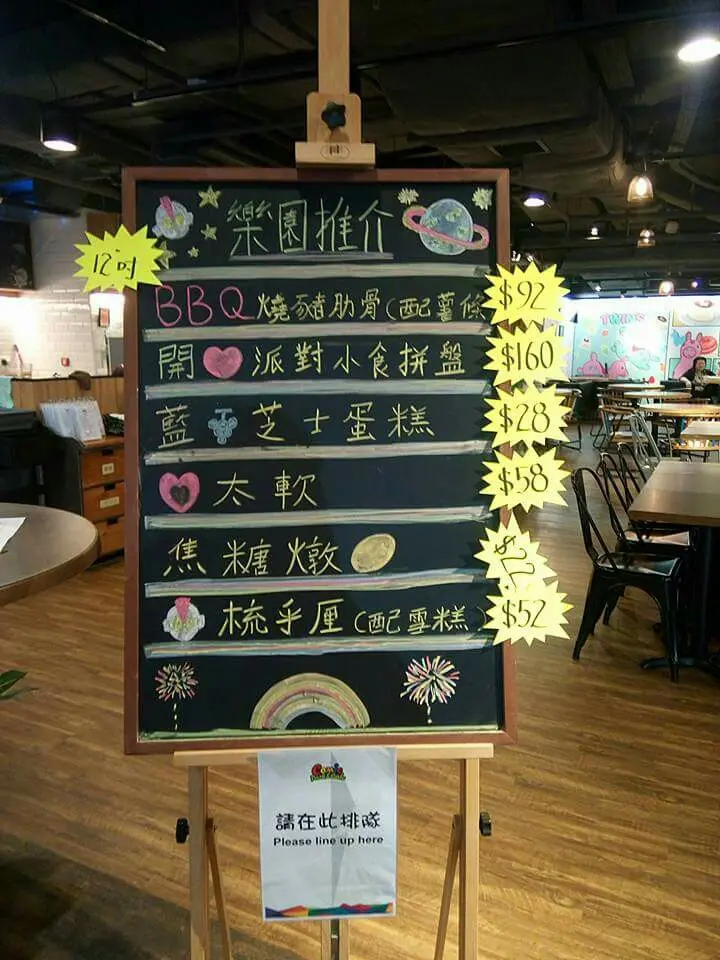 樂園推介
12吋
BBQ燒豬肋骨(配薯條 $92
開 派對小食拼盤 $160
藍 芝士蛋糕 $28
太軟 $58
焦糖燉
梳乎厘(配雪糕) $52
TWINS
請在此排隊
Please line up here